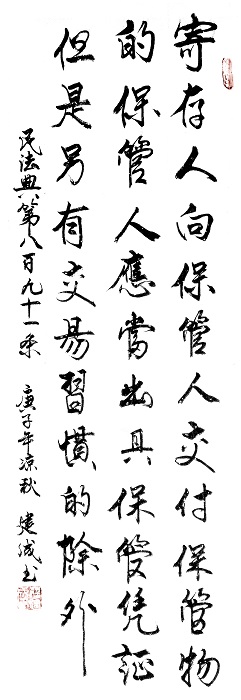 寄存人向保管人交付保管物
的保管人應當出具保管凭証
但是另有交易習慣的除外
民法典第八百九十一条
庚子年凉秋 建成书